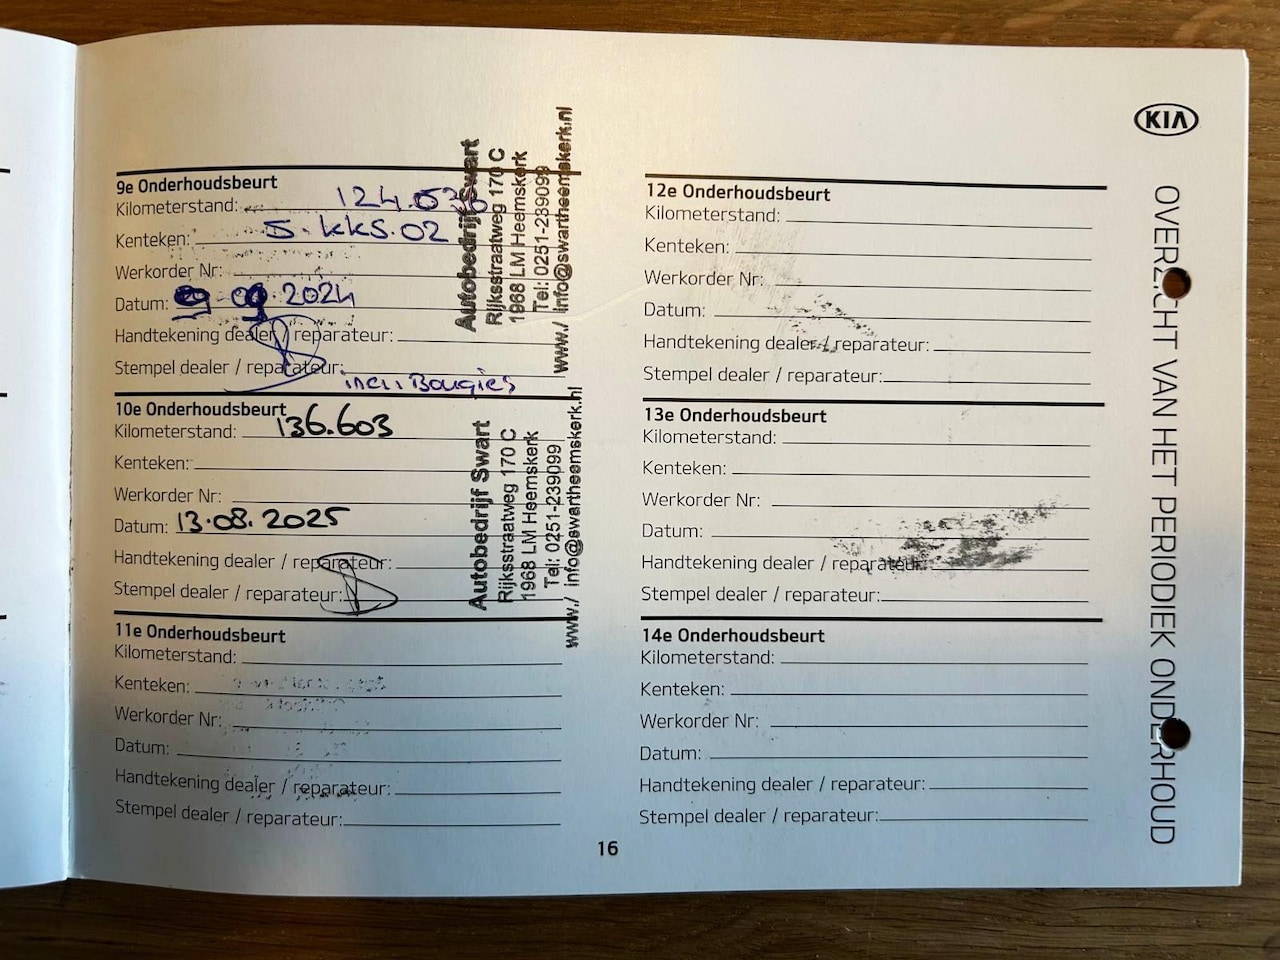 KIA
OVERZICHT VAN HET PERIODIEK ONDERHOUD
9e Onderhoudsbeurt
Kilometerstand: 124.036
Kenteken: 5.KKS.02
Werkorder Nr:
Datum: 09 09.2024
Handtekening dealer / reparateur:
Stempel dealer / reparateur:
incl. Bougies
Autobedrijf Swart
Rijksstraatweg 170 C
1968 LM Heemskerk
Tel: 0251-239099
www./ info@swartheemskerk.nl
10e Onderhoudsbeurt
Kilometerstand: 136.603
Kenteken:
Werkorder Nr:
Datum: 13.08.2025
Handtekening dealer / reparateur:
Stempel dealer / reparateur:
Autobedrijf Swart
Rijksstraatweg 170 C
1968 LM Heemskerk
Tel: 0251-239099
www./ info@swartheemskerk.nl
11e Onderhoudsbeurt
Kilometerstand:
Kenteken:
Werkorder Nr:
Datum:
Handtekening dealer / reparateur:
Stempel dealer / reparateur:
12e Onderhoudsbeurt
Kilometerstand:
Kenteken:
Werkorder Nr:
Datum:
Handtekening dealer / reparateur:
Stempel dealer / reparateur:
13e Onderhoudsbeurt
Kilometerstand:
Kenteken:
Werkorder Nr:
Datum:
Handtekening dealer / reparateur:
Stempel dealer / reparateur:
14e Onderhoudsbeurt
Kilometerstand:
Kenteken:
Werkorder Nr:
Datum:
Handtekening dealer / reparateur:
Stempel dealer / reparateur:
16